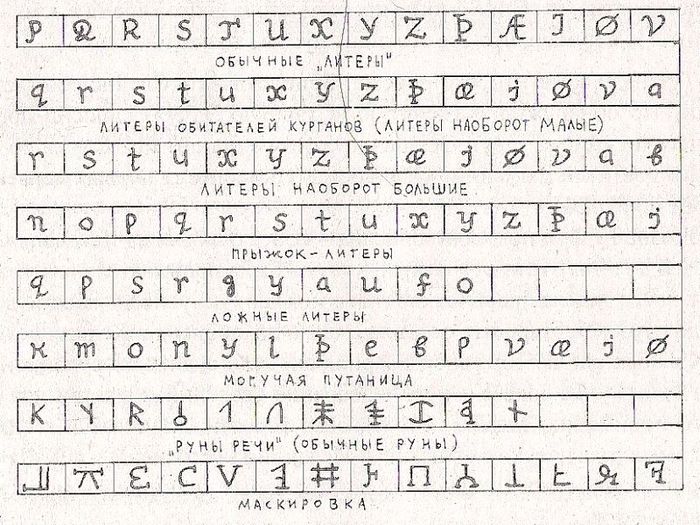 P Q R S T U X Y Z Þ Æ J Ø V
ОБЫЧНЫЕ „ЛИТЕРЫ"
q r s t u x y z þ æ j ø v a
ЛИТЕРЫ ОБИТАТЕЛЕЙ КУРГАНОВ (ЛИТЕРЫ НАОБОРОТ МАЛЫЕ)
r s t u x y z þ æ j ø v a в
ЛИТЕРЫ НАОБОРОТ БОЛЬШИЕ
n o p q r s t u x y z þ æ j
ПРЫЖОК-ЛИТЕРЫ
q p s r g y a u f o
ЛОЖНЫЕ ЛИТЕРЫ
к m o n y l þ e в p v æ j ø
МОГУЧАЯ ПУТАНИЦА
„РУНЫ РЕЧИ" (ОБЫЧНЫЕ РУНЫ)
МАСКИРОВКА